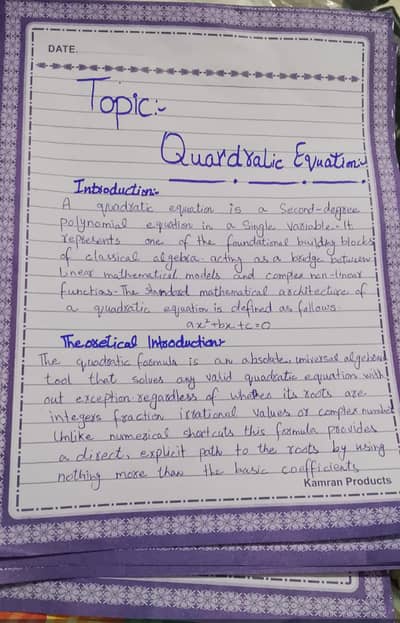 DATE.
Topic:-
Quardralic Equation:-
Introduction:-
A quadratic equation is a Second-degree
polynomial equation in a Single variable. It
represents one of the foundational building blocks
of classical algebra. acting as a bridge between
linear mathematical models and complex non-linear
functions. The standard mathematical architecture of
a quadratic equation is defined as follows.
ax²+bx+c=0
Theoretical Introduction:-
The quadratic formula is an absolute, universal algebraic
tool that solves any valid quadratic equation with
out exception regardless of whether its roots are
integers fraction irrational values or complex number
Unlike numerical shortcuts this formula provides
a direct, explicit path to the roots by using
nothing more than the basic coefficients
Kamran Products